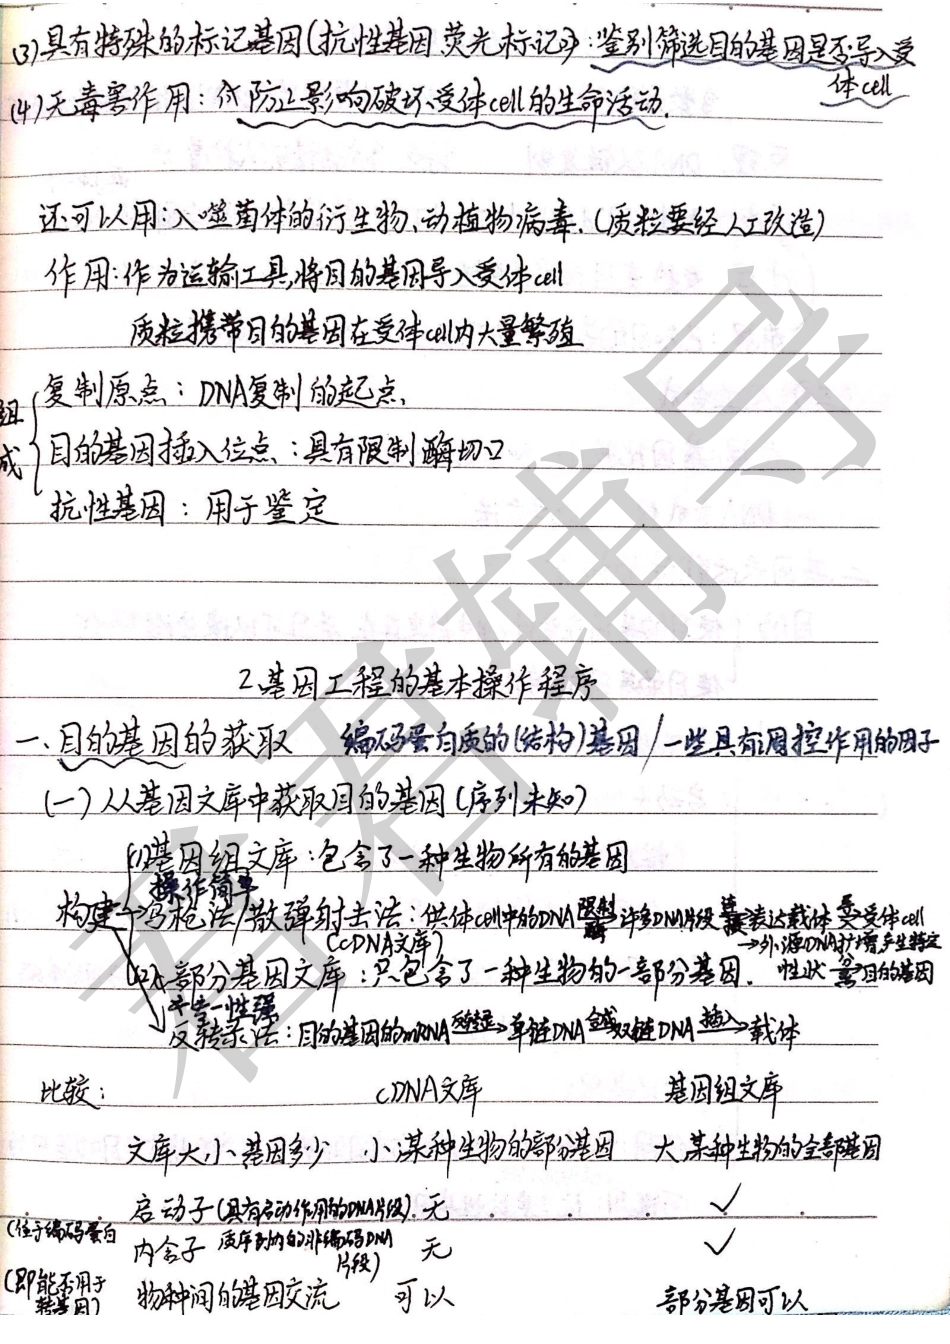 (3)具有特殊的标记基因(抗性基因 荧光标记):鉴别筛选目的基因是否导入受
体cell
(4)无毒害作用:防止影响破坏受体cell的生命活动.
还可以用:入噬菌体的衍生物、动植物病毒.(质粒要经人工改造)
作用:作为运输工具,将目的基因导入受体cell
质粒携带目的基因在受体cell内大量繁殖
组成
复制原点:DNA复制的起点.
目的基因插入位点:具有限制酶切口
抗性基因:用于鉴定
2.基因工程的基本操作程序
一、目的基因的获取 编码蛋白质的(结构)基因/一些具有调控作用的因子
(一)从基因文库中获取目的基因(序列未知)
(1)基因组文库:包含了一种生物所有的基因
操作简单
构建→鸟枪法/散弹射击法:供体cell中的DNA 限制酶 许多DNA片段 连接 表达载体 导 受体cell
→外源DNA扩增,产生特定
性状 分离 目的基因
(cDNA文库)
(2)部分基因文库:只包含了一种生物的一部分基因.
专一性强
反转录法:目的基因的mRNA 逆转录→单链DNA 合成 双链DNA 插入→载体
比较: cDNA文库 基因组文库
文库大小、基因多少 小,某种生物的部分基因 大,某种生物的全部基因
启动子(具有启动作用的DNA片段) 无 ✓
(位于编码蛋白
内含子 质序列内的非编码DNA
片段) 无 ✓
(即能否用于
转基因)
物种间的基因交流 可以 部分基因可以
君君辅导